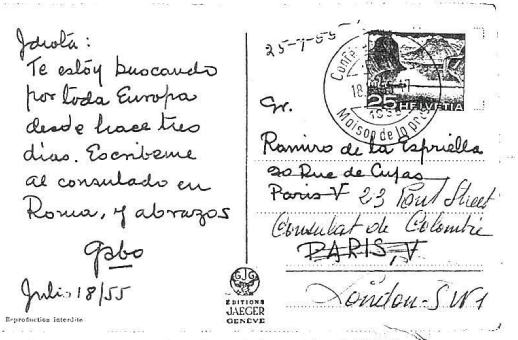 Idiota:
Te estoy buscando
por toda Europa
desde hace tres
días. Escríbeme
al consulado en
Roma, y abrazos
gabo
Julio 18/55
Reproduction interdite
EDITIONS
JAEGER
GENÈVE
25-7-55-
18
25 HELVETIA
Maison de la pre
Sr.
Ramiro de la Espriella
20 Rue de Cujas
Paris V 23 Pont Street
Consulat de Colombie
PARIS, V
London-SW1